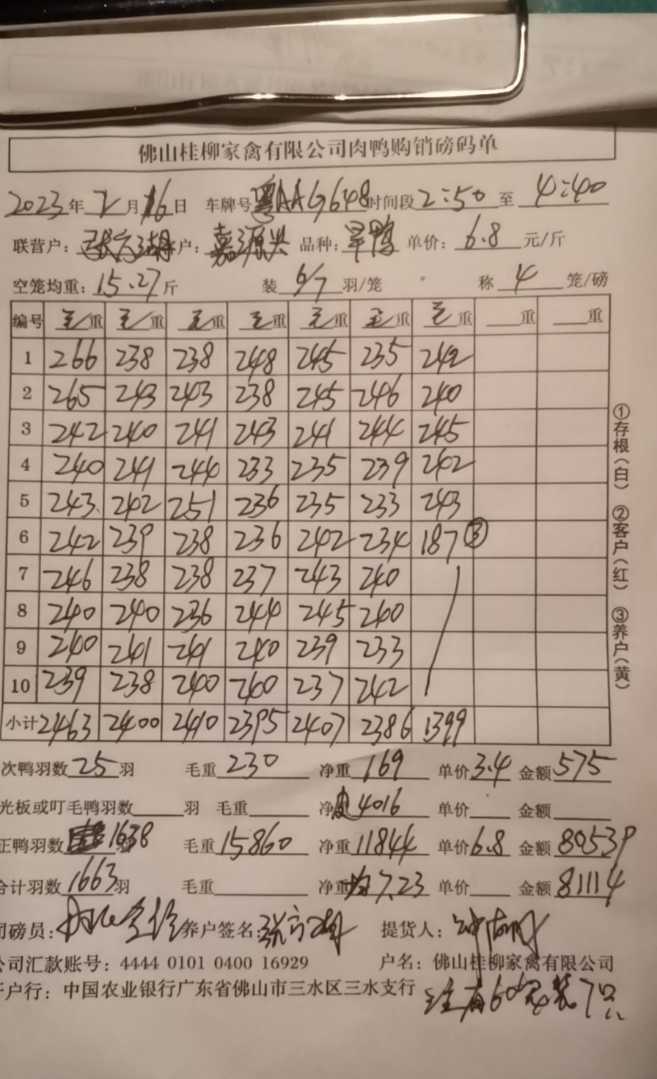 佛山桂柳家禽有限公司肉鸭购销磅码单
2023年2月16日 车牌号粤AAG648时间段2:50至4:40
联营户:张六湖户:嘉源兴 品种:旱鸭 单价:6.8元/斤
空笼均重:15.27斤 装6/7羽/笼 称4笼/磅
编号 毛重 毛重 毛重 毛重 毛重 毛重 毛重 重 重
1 266 238 238 248 245 235 242
2 265 243 243 238 245 246 240
3 242 240 241 243 241 244 245
4 240 241 244 233 235 239 242
5 243 242 251 236 235 233 243
6 242 239 238 236 242 234 187 ③
7 246 238 238 237 243 240
8 240 240 236 244 245 240
9 240 241 241 240 239 233
10 239 238 240 240 237 242
小计 2463 2400 2410 2395 2407 2386 1399
次鸭羽数25羽 毛重230 净重169 单价3.4 金额575
光板或叮毛鸭羽数 羽 毛重 净皮4016 单价 金额
正鸭羽数1638 毛重15860 净重11844 单价6.8 金额80539
合计羽数1663羽 毛重 净重均7.23 单价 金额81114
司磅员: 养户签名:张六湖 提货人:
公司汇款账号:4444 0101 0400 16929 户名:佛山桂柳家禽有限公司
开户行:中国农业银行广东省佛山市三水区三水支行 注:有60笼装7只
①存根(白) ②客户(红) ③养户(黄)